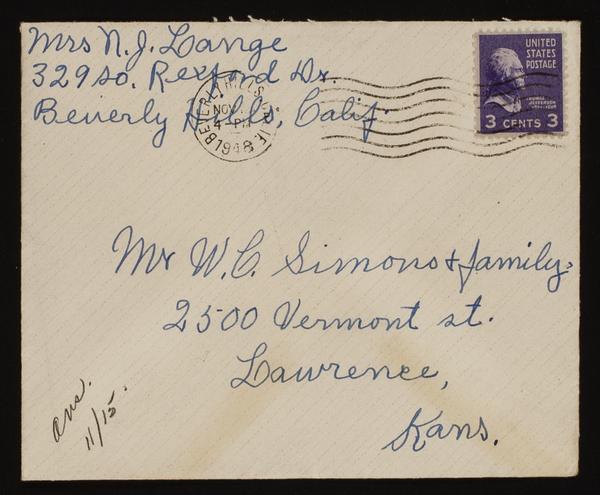 Mrs N. J. Lange
329 so. Rexford Dr.
Beverly Hills, Calif.
BEVERLY HILLS
NOV
4 - PM
1948
UNITED
STATES
POSTAGE
THOMAS
JEFFERSON
3 CENTS 3
Mr W. C. Simons & family,
2500 Vermont st.
Lawrence,
Kans.
ans.
11/15.